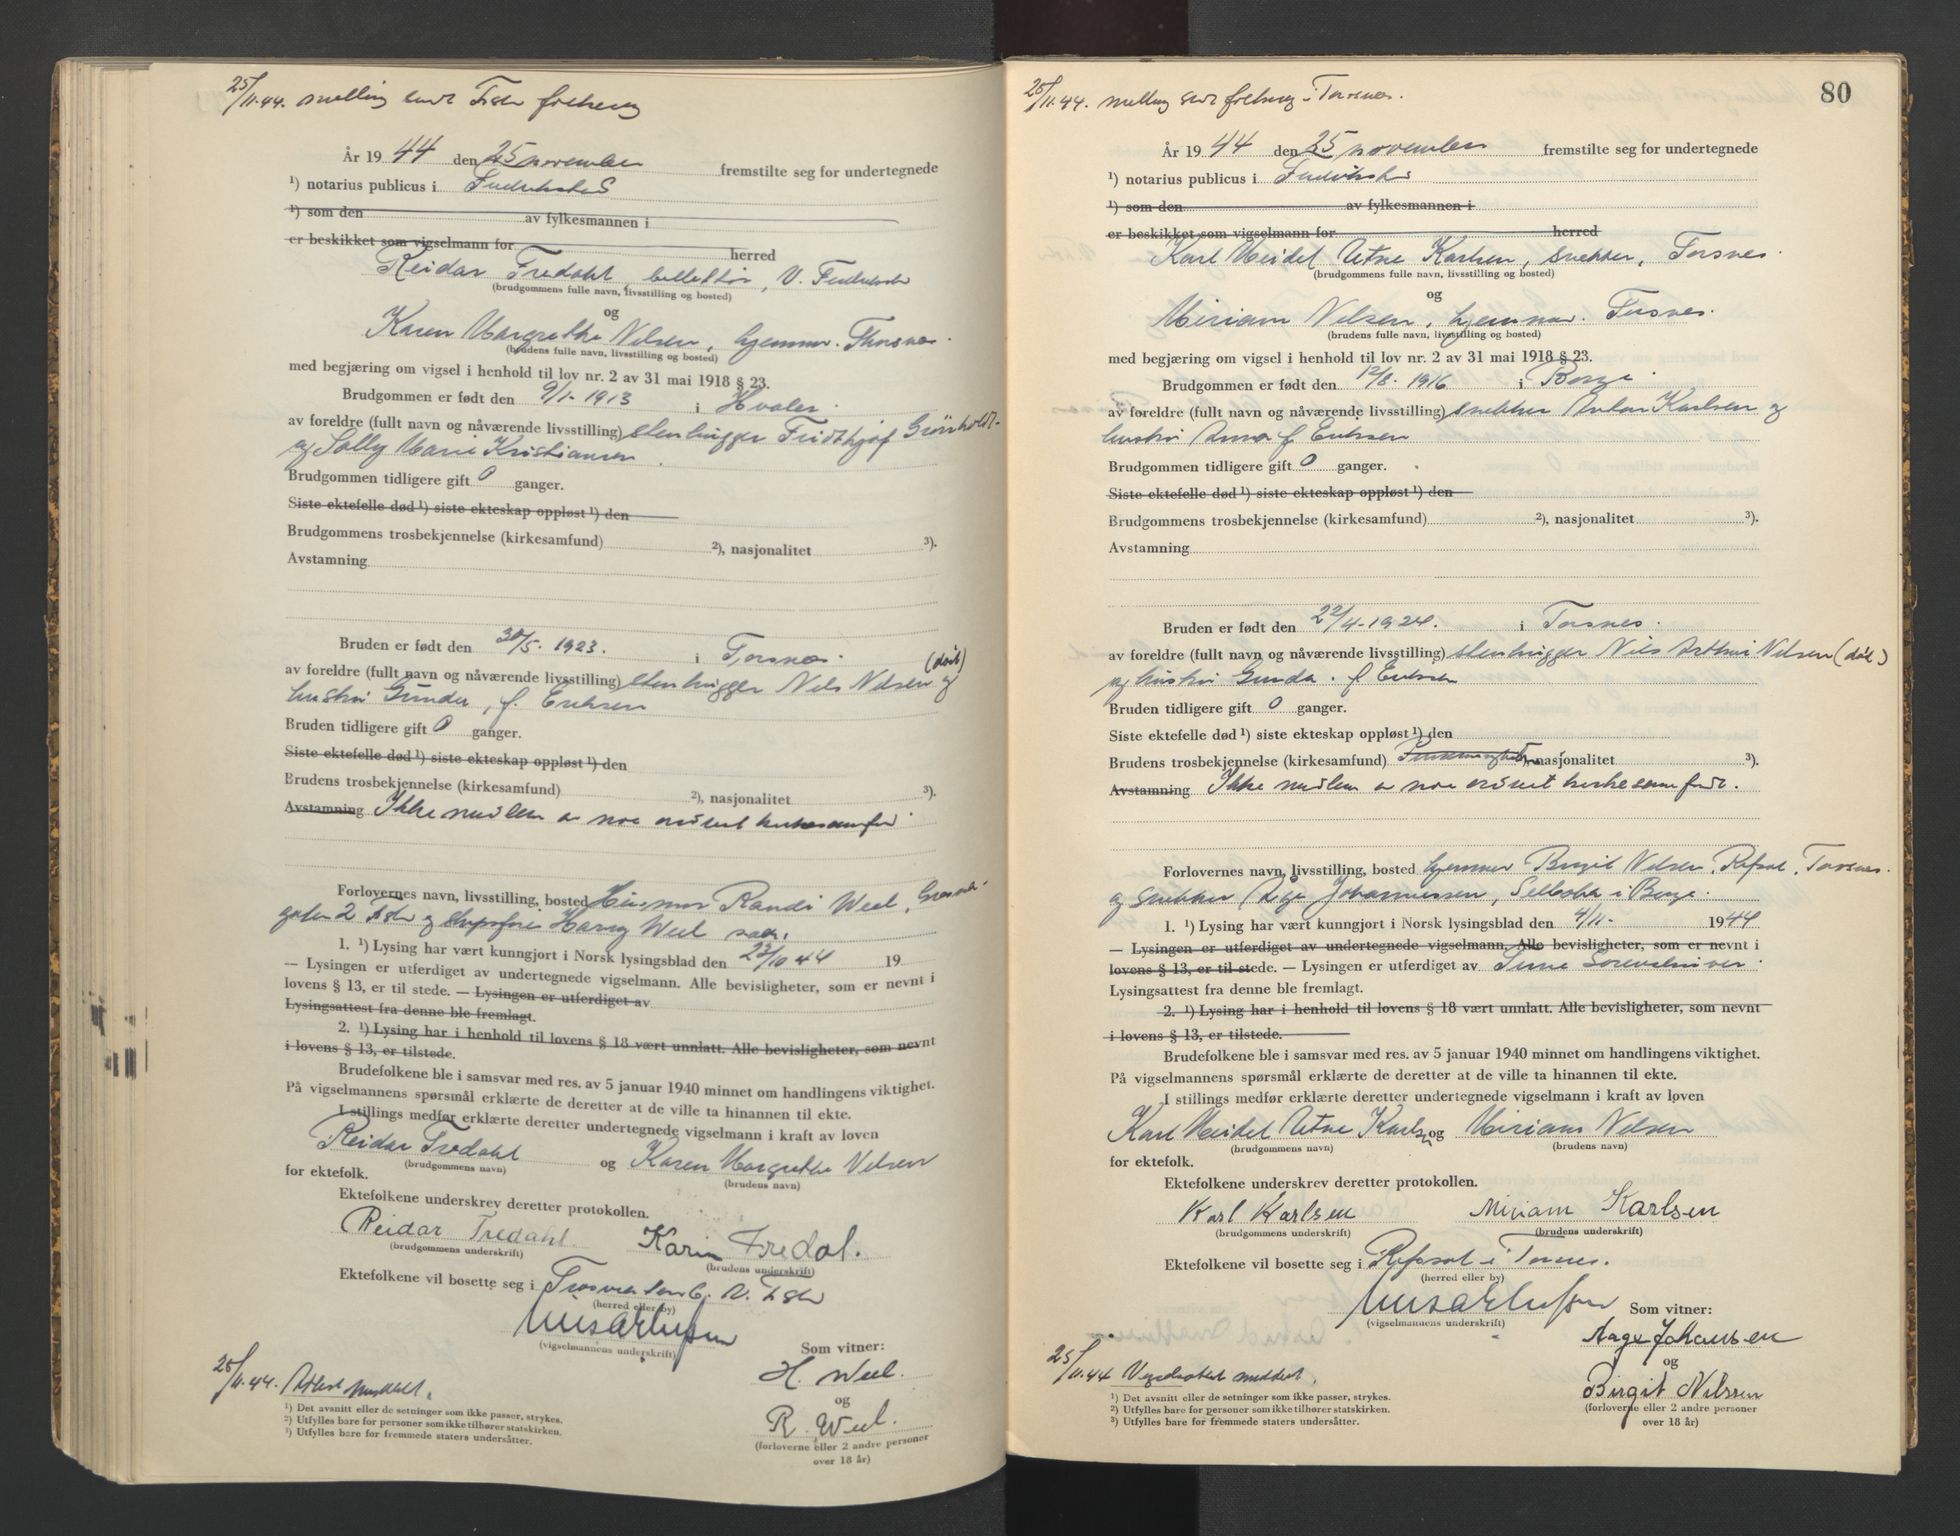 25/11.44. melling sendt F.stad folkereg
År 19 44 den 25 november fremstilte seg for undertegnede
¹) notarius publicus i Fredrikstad
¹) som den av fylkesmannen i
er beskikket som vigselmann for herred
Reidar Fredahl, V. Fredrikstad
(brudgommens fulle navn, livsstilling og bosted)
og
Karen Margrethe Nilsen, hjemmev. Thorsnes.
(brudens fulle navn, livsstilling og bosted)
med begjæring om vigsel i henhold til lov nr. 2 av 31 mai 1918 § 23.
Brudgommen er født den 9/1-1913 i Hvaler.
av foreldre (fullt navn og nåværende livsstilling) stenhugger Fridthjof Grönholdt
og Solly Marie Kristiansen.
Brudgommen tidligere gift 0 ganger.
Siste ektefelle død ¹) siste ekteskap oppløst ¹) den
Brudgommens trosbekjennelse (kirkesamfund) ²), nasjonalitet ³).
Avstamning
Bruden er født den 30/5-1923. i Torsnes.
av foreldre (fullt navn og nåværende livsstilling) stenhugger Nils Nilsen (död) og
hustru Gunda, f. Eriksen
Bruden tidligere gift 0 ganger.
Siste ektefelle død ¹) siste ekteskap oppløst ¹) den
Brudens trosbekjennelse (kirkesamfund) ²), nasjonalitet ³).
Avstamning Ikke medlem av noe ordnet kirkesamfund.
Forlovernes navn, livsstilling, bosted Husmor Randi Weel,
gaten 2 F.stad og Harry Weel
1. ¹) Lysing har vært kunngjort i Norsk lysingsblad den 23/10 44 19
— Lysingen er utferdiget av undertegnede vigselmann. Alle bevisligheter, som er nevnt i
lovens § 13, er til stede. — Lysingen er utferdiget av
Lysingsattest fra denne ble fremlagt.
2. ¹) Lysing har i henhold til lovens § 18 vært unnlatt. Alle bevisligheter, som nevnt
i lovens § 13, er tilstede.
Brudefolkene ble i samsvar med res. av 5 januar 1940 minnet om handlingens viktighet.
På vigselmannens spørsmål erklærte de deretter at de ville ta hinannen til ekte.
I stillings medfør erklærte deretter undertegnede vigselmann i kraft av loven
Reidar Fredahl og Karen Margrethe Nilsen
(brudgommens navn) (brudens navn)
for ektefolk.
Ektefolkene underskrev deretter protokollen.
Reidar Fredahl. Karin Fredal.
(brudgommens underskrift) (brudens underskrift)
Ektefolkene vil bosette seg i V. F.stad
(herred eller by)
(vigselmannens underskrift)
Som vitner:
25/11.44. Attest meddelt.
H. Weel.
og
R. Weel.
(forloverne eller 2 andre personer
over 18 år)
¹) Det avsnitt eller de setninger som ikke passer, strykes.
²) Utfylles bare for personer som ikke tilhører statskirken.
³) Utfylles bare for fremmede staters undersåtter.
80
25/11.44. melling sendt folkereg i Torsnes.
År 19 44 den 25 november fremstilte seg for undertegnede
¹) notarius publicus i Fredrikstad
¹) som den av fylkesmannen i
er beskikket som vigselmann for herred
Karl Meidel Karlsen, snekker, Torsnes.
(brudgommens fulle navn, livsstilling og bosted)
og
Miriam Nilsen, hjemmev. Torsnes.
(brudens fulle navn, livsstilling og bosted)
med begjæring om vigsel i henhold til lov nr. 2 av 31 mai 1918 § 23.
Brudgommen er født den 12/8-1916 i Borge.
av foreldre (fullt navn og nåværende livsstilling) snekker Anton Karlsen og
hustru Anna f. Eriksen
Brudgommen tidligere gift 0 ganger.
Siste ektefelle død ¹) siste ekteskap oppløst ¹) den
Brudgommens trosbekjennelse (kirkesamfund) ²), nasjonalitet ³).
Avstamning
Bruden er født den 22/4-1924. i Torsnes.
av foreldre (fullt navn og nåværende livsstilling) stenhugger Nils Arthur Nilsen (död)
og hustru Gunda. f. Eriksen
Bruden tidligere gift 0 ganger.
Siste ektefelle død ¹) siste ekteskap oppløst ¹) den
Brudens trosbekjennelse (kirkesamfund) nasjonalitet ³).
Avstamning Ikke medlem av noe ordnet kirkesamfund.
Forlovernes navn, livsstilling, bosted hjemmev Birgit Nilsen, Refsol, Torsnes.
og snekker Åge Johannessen, Sellebakk i Borge.
1. ¹) Lysing har vært kunngjort i Norsk lysingsblad den 4/11- 1944
— Lysingen er utferdiget av undertegnede vigselmann. Alle bevisligheter, som er nevnt i
lovens § 13, er til stede. — Lysingen er utferdiget av Tune Sorenskriver.
Lysingsattest fra denne ble fremlagt.
2. ¹) Lysing har i henhold til lovens § 18 vært unnlatt. Alle bevisligheter, som nevnt
i lovens § 13, er tilstede.
Brudefolkene ble i samsvar med res. av 5 januar 1940 minnet om handlingens viktighet.
På vigselmannens spørsmål erklærte de deretter at de ville ta hinannen til ekte.
I stillings medfør erklærte deretter undertegnede vigselmann i kraft av loven
Karl Meidel Karlsen og Miriam Nilsen
(brudgommens navn) (brudens navn)
for ektefolk.
Ektefolkene underskrev deretter protokollen.
Karl Karlsen Miriam Karlsen
(brudgommens underskrift) (brudens underskrift)
Ektefolkene vil bosette seg i Refsol i Torsnes.
(herred eller by)
Som vitner:
(vigselmannens underskrift)
Aage Johansen
og
25/11.44 Vigselsattest meddelt.
Birgit Nilssen
(forloverne eller 2 andre personer
over 18 år)
¹) Det avsnitt eller de setninger som ikke passer, strykes.
²) Utfylles bare for personer som ikke tilhører statskirken.
³) Utfylles bare for fremmede staters undersåtter.